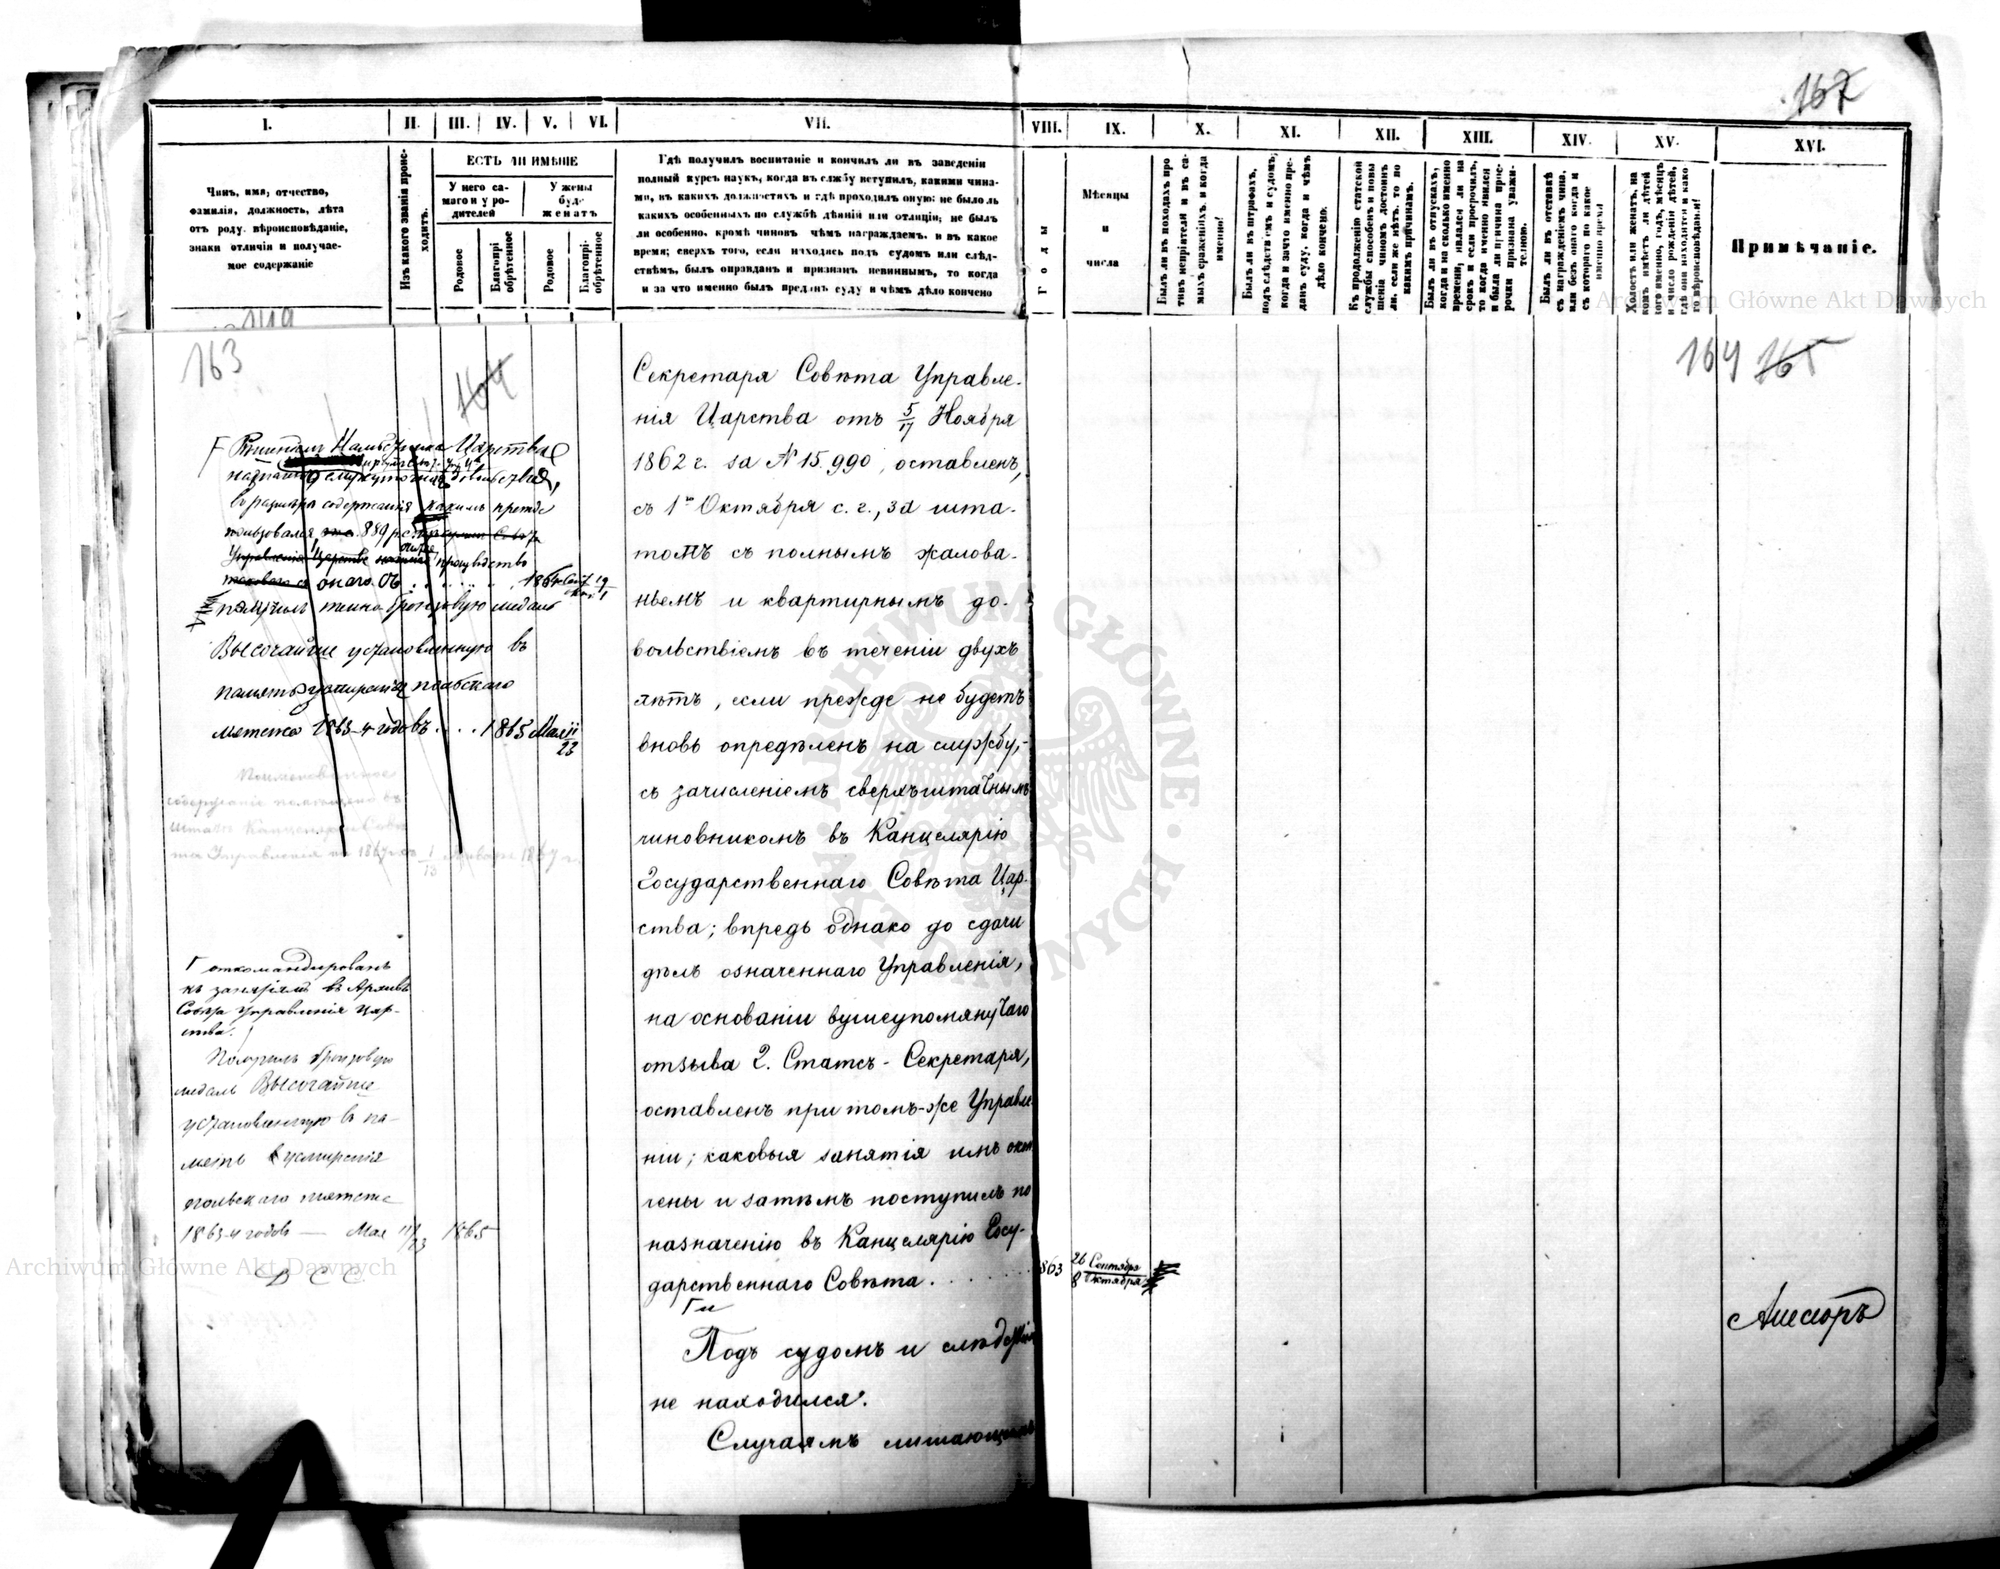 167
I. II. III. IV. V. VI. VII. VIII. IX. X. XI. XII. XIII. XIV. XV. XVI.
Чинъ, имя, отчество,
фамилія, должность, лѣта
отъ роду, вѣроисповѣданіе,
знаки отличія и получае-
мое содержаніе
Изъ какого званія проис-
ходитъ.
ЕСТЬ ЛИ ИМѢНІЕ
У него са-
маго и у ро-
дителей
У жены
буде
женатъ
Родовое
Благопрі-
обрѣтенное
Родовое
Благопрі-
обрѣтенное
Гдѣ получилъ воспитаніе и кончилъ ли въ заведеніи
полный курсъ наукъ, когда въ службу вступилъ, какими чина-
ми, въ какихъ должностяхъ и гдѣ проходилъ оную; не было ль
какихъ особенныхъ по службѣ дѣяній или отличій; не былъ
ли особенно, кромѣ чиновъ чѣмъ награждаемъ, и въ какое
время; сверхъ того, если находясь подъ судомъ или слѣд-
ствіемъ, былъ оправданъ и признанъ невиннымъ, то когда
и за что именно былъ преданъ суду и чѣмъ дѣло кончено
Годы
Мѣсяцы
и
числа
Былъ ли въ походахъ про
тивъ непріятеля и въ са-
мыхъ сраженіяхъ, и когда
именно!
Былъ ли въ штрафахъ,
подъ слѣдствіемъ и судомъ,
когда и за что именно пре-
данъ суду, когда и чѣмъ
дѣло кончено.
Къ продолженію статской
службы способенъ и повы
шенія чиномъ достоинъ
ли, если же нѣтъ, то по
какимъ причинамъ.
Былъ ли въ отпускахъ,
когда и на сколько именно
времени, являлся ли на
срокъ и если просрочилъ,
то когда именно явился
и была ли причина прос-
рочки признана уважи-
тельною.
Былъ ли въ отставкѣ
съ награжденіемъ чина,
или безъ онаго когда и
съ котораго по какое
именно время
Холостъ или женатъ, на
комъ имѣетъ ли дѣтей
кого именно, годъ, мѣсяцъ
и число рожденія дѣтей,
гдѣ они находятся и како
го вѣроисповѣданія!
Примѣчаніе.
Archiwum Główne Akt Dawnych
163
164
164 165
Намѣстника Царства
содержанія какимъ прежде
пользовался 889 р.
Управленія Царства
онаго. Съ
получилъ темно-бронзовую медаль
Высочайше установленную въ
память усмиренія польскаго
мятежа 1863-4 годовъ . . . . 1865 Мая 11/23
Поименованное
содержаніе
штатъ Канцеляріи
Управленія 1/13 Января 1867 г.
откомандированъ
къ занятіямъ въ Архивъ
Совѣта Управленія Цар-
ства.
Получилъ бронзовую
медаль Высочайше
установленную въ па-
мять усмиренія
польскаго мятежа
1863-4 годовъ — Мая 11/23 1865
Секретаря Совѣта Управле-
нія Царства отъ 5/17 Ноября
1862 г. за № 15.990, оставленъ,
съ 1го Октября с. г., за шта-
томъ съ полнымъ жалова-
ньемъ и квартирнымъ до-
вольствіемъ въ теченіи двухъ
лѣтъ, если прежде не будетъ
вновь опредѣленъ на службу,
съ зачисленіемъ сверхъштатнымъ
чиновникомъ въ Канцелярію
Государственнаго Совѣта Цар-
ства; впредь однако до сдачи
дѣлъ означеннаго Управленія,
на основаніи вышеупомянутаго
отзыва Г. Статсъ-Секретаря,
оставленъ при томъ-же Управле
ніи; каковыя занятія имъ окон
чены и затѣмъ поступилъ по
назначенію въ Канцелярію Госу-
дарственнаго Совѣта . . . . . .
863
26 Сентября
8 Октября
Подъ судомъ и слѣдствіемъ
не находился.
Случаямъ лишающимъ
Ассесоръ
ARCHIWUM GŁÓWNE AKT DAWNYCH
Archiwum Główne Akt Dawnych